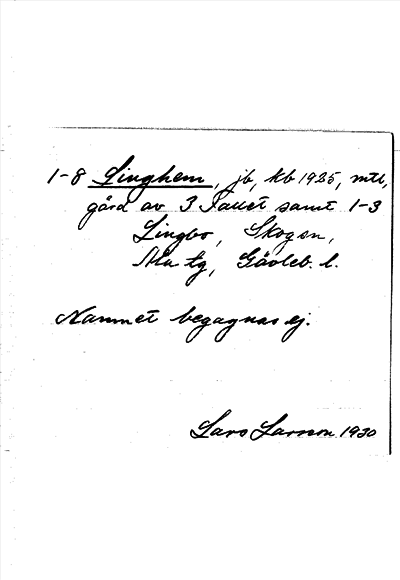 1-8 Linghem, jb, kb 1925, mtl,
gård av 3 Tallet samt 1-3
Lingbo, Skogen,
Ala tg, Gävleb. l.
Namnet begagnas ej.
Lars Larsson 1930